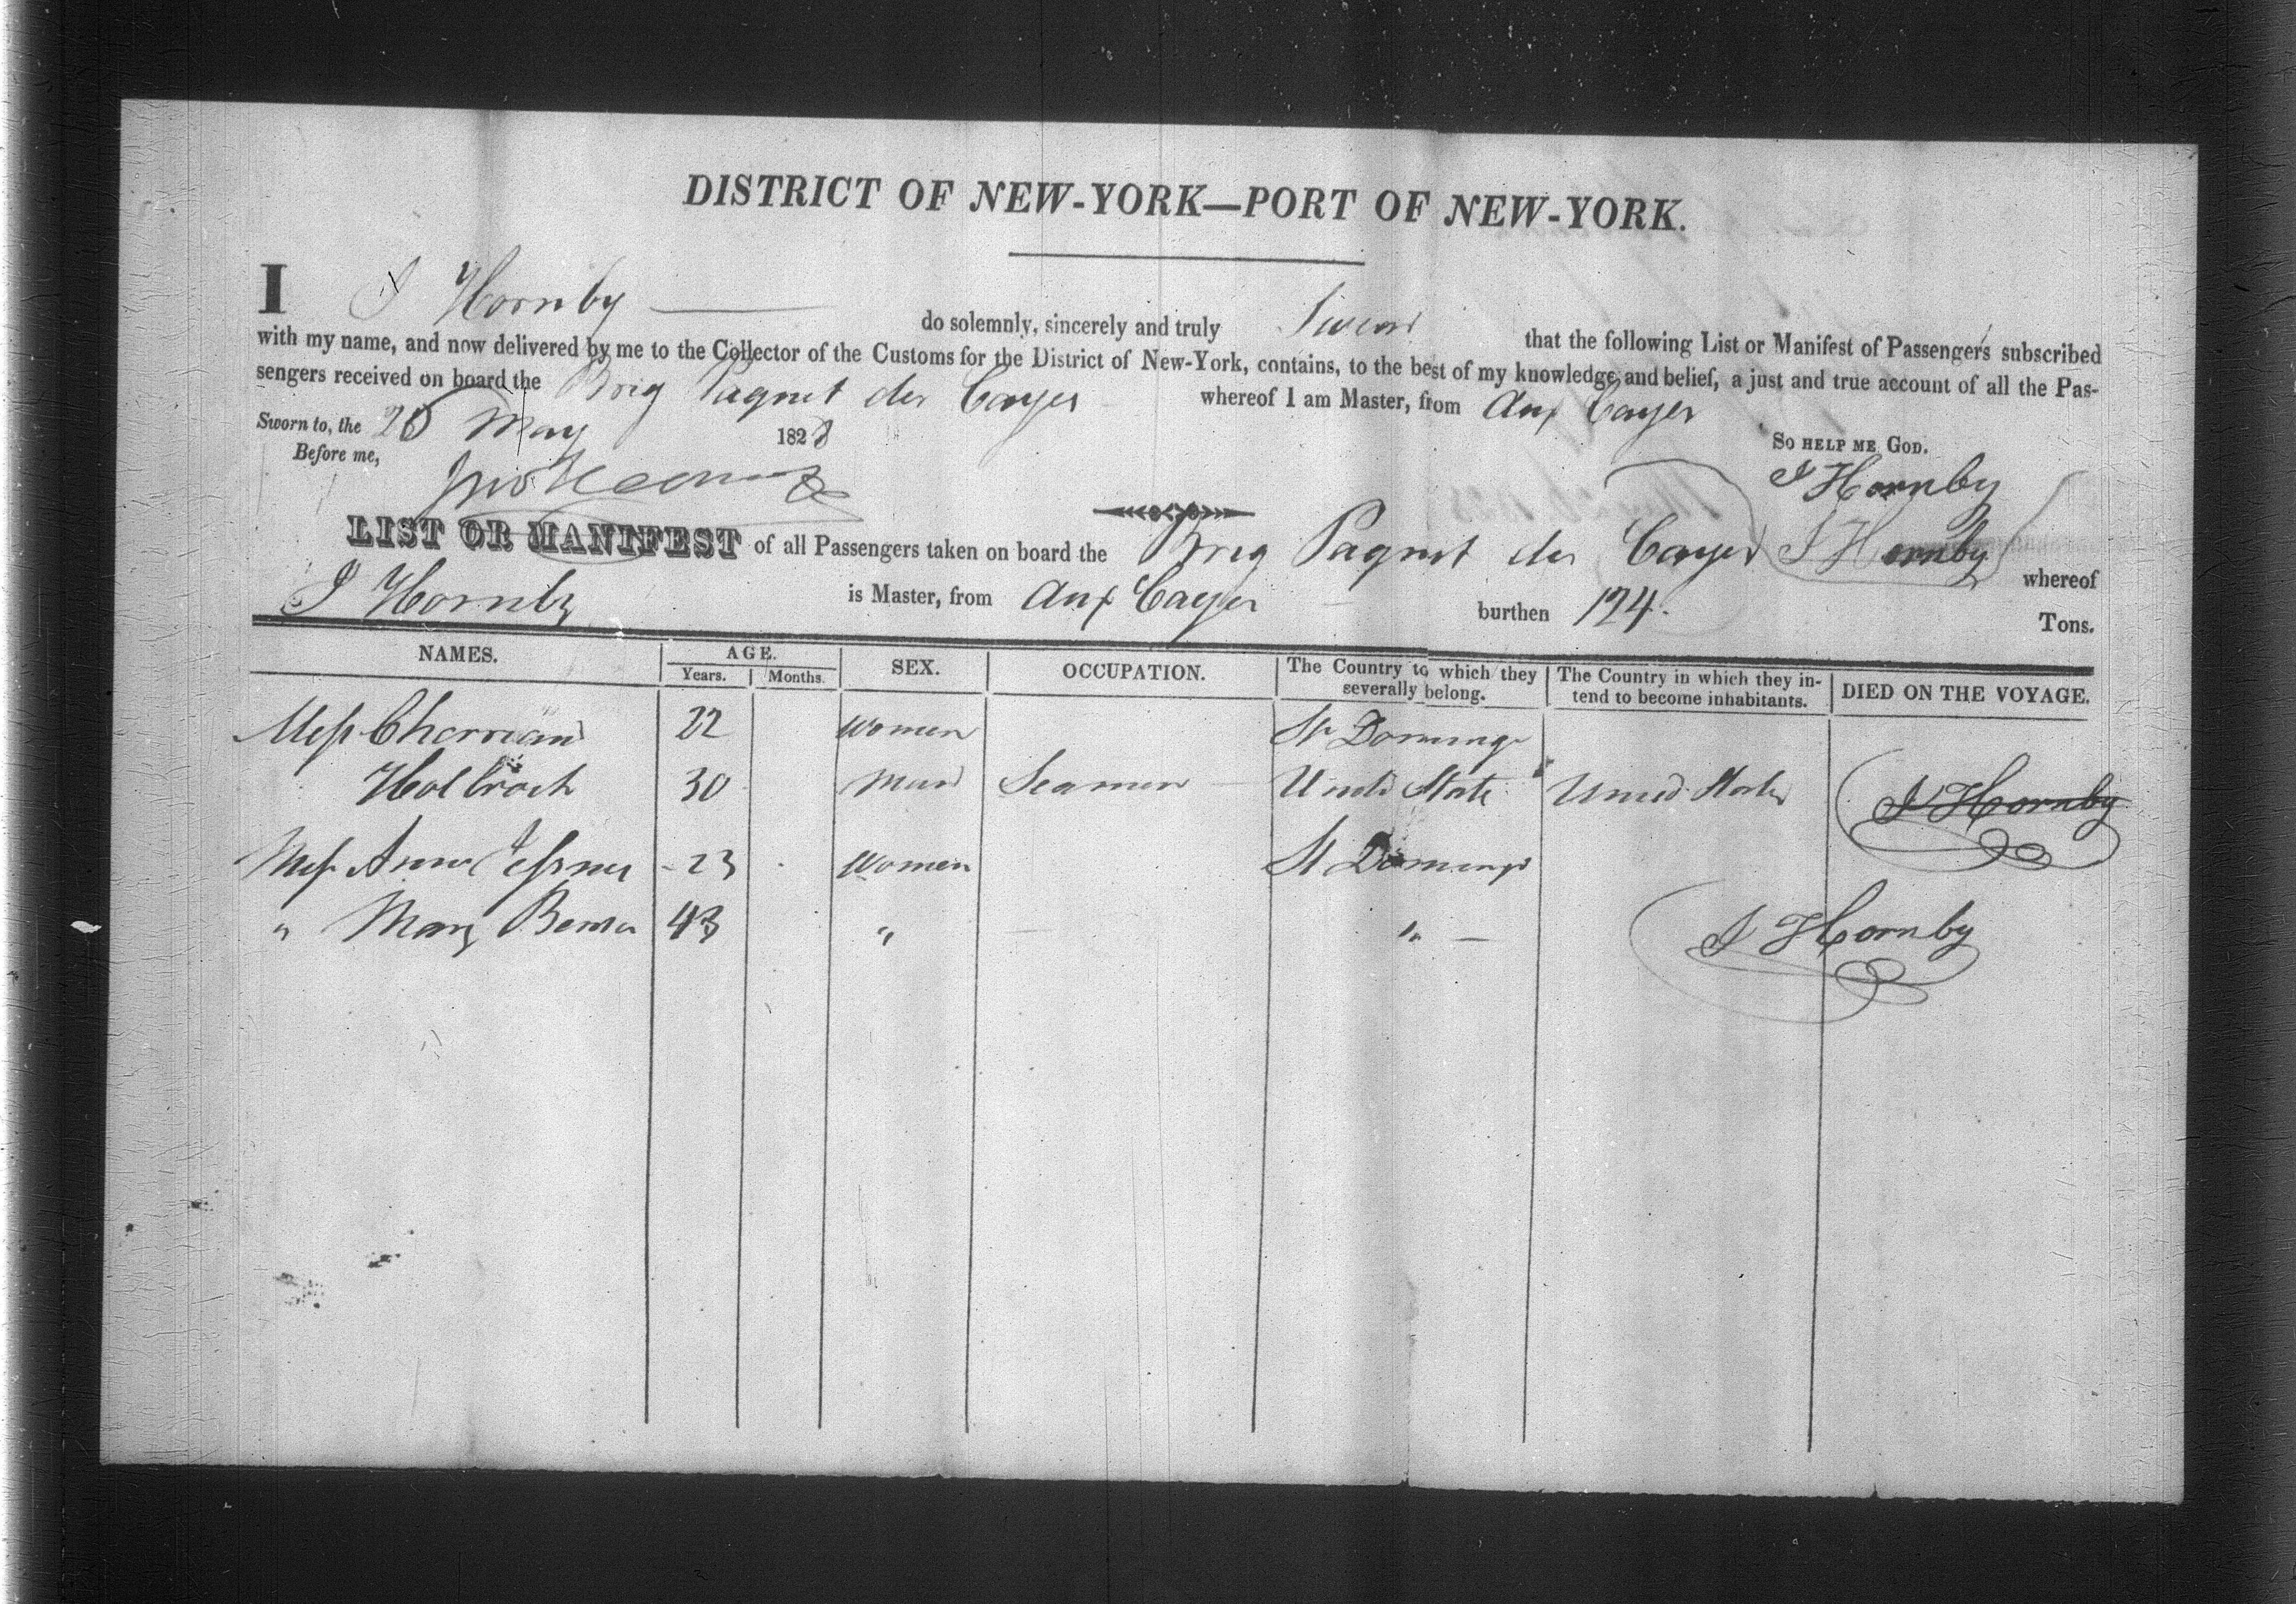 DISTRICT OF NEW-YORK—PORT OF NEW-YORK.
I J Hornby do solemnly, sincerely and truly Swear that the following List or Manifest of Passengers subscribed
with my name, and now delivered by me to the Collector of the Customs for the District of New-York, contains, to the best of my knowledge and belief, a just and true account of all the Pas-
sengers received on board the Brig Paquet des Cayes whereof I am Master, from Aux Cayes
Sworn to, the 26 May 1828 So HELP ME GOD.
Before me, J Hornby
LIST OR MANIFEST of all Passengers taken on board the Brig Paquet des Cayes J Hornby whereof
J Hornby is Master, from Aux Cayes burthen 124 Tons.
NAMES. AGE. SEX. OCCUPATION. The Country to which they severally belong. The Country in which they in-tend to become inhabitants. DIED ON THE VOYAGE.
Years. Months.
22 Women St Domingo
Holbrook 30 Man Seamen United State United States J Hornby
Ann 23 Women St Domingo
" Mary 43 " " — J Hornby